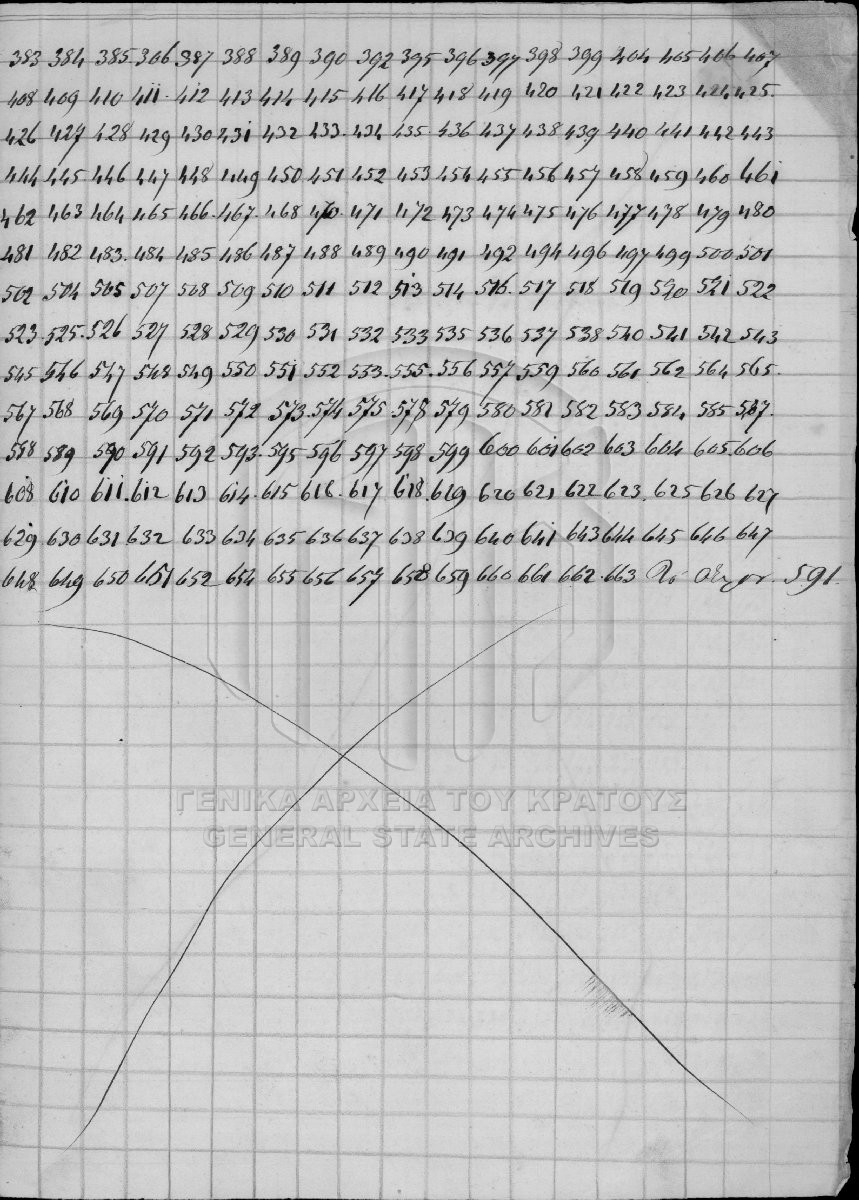 383 384 385 306 387 388 389 390 392 395 396 397 398 399 404 405 406 407
408 409 410 411 412 413 414 415 416 417 418 419 420 421 422 423 424 425
426 427 428 429 430 431 432 433 434 435 436 437 438 439 440 441 442 443
444 445 446 447 448 449 450 451 452 453 454 455 456 457 458 459 460 461
462 463 464 465 466 467 468 470 471 472 473 474 475 476 477 478 479 480
481 482 483 484 485 486 487 488 489 490 491 492 494 496 497 499 500 501
502 504 505 507 508 509 510 511 512 513 514 516 517 518 519 520 521 522
523 525 526 527 528 529 530 531 532 533 535 536 537 538 540 541 542 543
545 546 547 548 549 550 551 552 553 555 556 557 559 560 561 562 564 565
567 568 569 570 571 572 573 574 575 578 579 580 581 582 583 584 585 587
588 589 590 591 592 593 595 596 597 598 599 600 601 602 603 604 605 606
608 610 611 612 613 614 615 616 617 618 619 620 621 622 623 625 626 627
629 630 631 632 633 634 635 636 637 638 639 640 641 643 644 645 646 647
648 649 650 651 652 654 655 656 657 658 659 660 661 662 663 591
ΓΕΝΙΚΑ ΑΡΧΕΙΑ ΤΟΥ ΚΡΑΤΟΥΣ
GENERAL STATE ARCHIVES